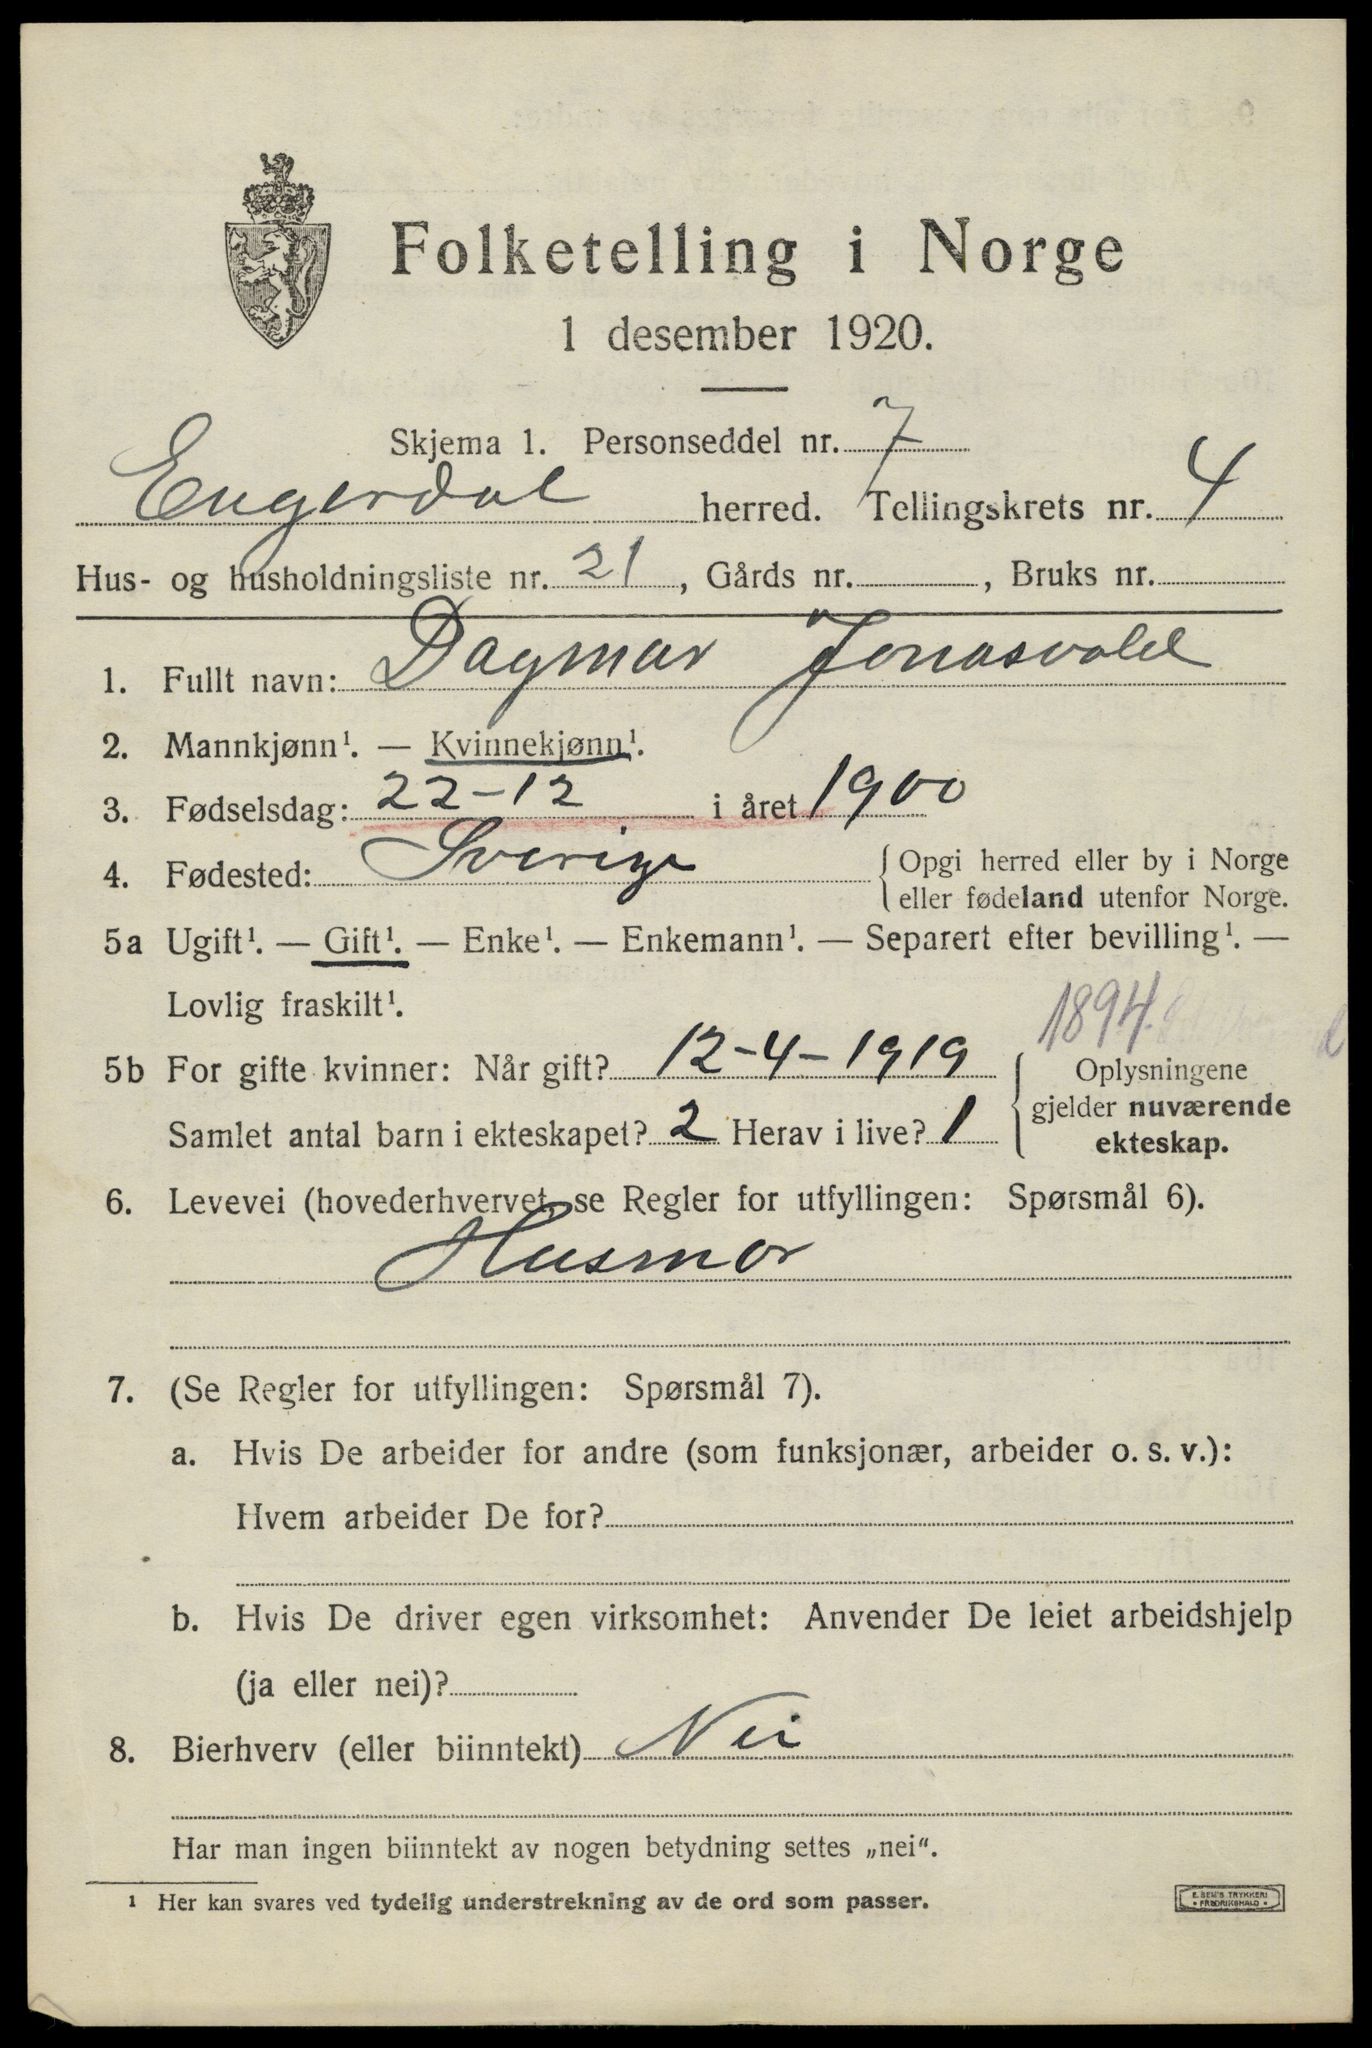 Folketelling i Norge
1 desember 1920.
Skjema 1. Personseddel nr. 7
Engerdal herred. Tellingskrets nr. 4
Hus- og husholdningsliste nr. 21, Gårds nr. , Bruks nr.
1. Fullt navn: Dagmar Jonasvold
2. Mannkjønn¹. — Kvinnekjønn¹.
3. Fødselsdag: 22-12 i året 1900
4. Fødested: Sverige {Opgi herred eller by i Norge
eller fødeland utenfor Norge.
5a Ugift¹. — Gift¹. — Enke¹. — Enkemann¹. — Separert efter bevilling¹. —
Lovlig fraskilt¹.
1894
5b For gifte kvinner: Når gift? 12-4-1919 { Oplysningene
gjelder nuværende
Samlet antal barn i ekteskapet? 2 Herav i live? 1 ekteskap.
6. Levevei (hovederhvervet, se Regler for utfyllingen: Spørsmål 6).
Husmor
7. (Se Regler for utfyllingen: Spørsmål 7).
a. Hvis De arbeider for andre (som funksjonær, arbeider o. s. v.):
Hvem arbeider De for?
b. Hvis De driver egen virksomhet: Anvender De leiet arbeidshjelp
(ja eller nei)?
8. Bierhverv (eller biinntekt) Nei
Har man ingen biinntekt av nogen betydning settes „nei“.
¹ Her kan svares ved tydelig understrekning av de ord som passer.
E. SEM'S TRYKKERI
FREDRIKSHALD